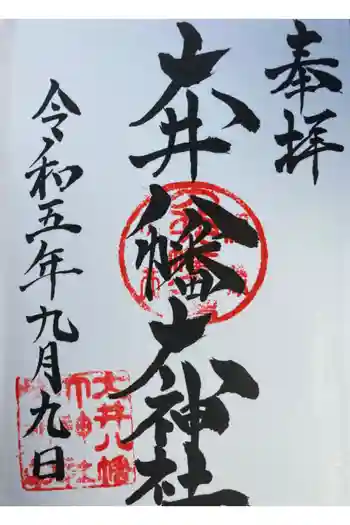 奉拝
大井八幡大神社
令和五年九月九日
大井八幡
大神社